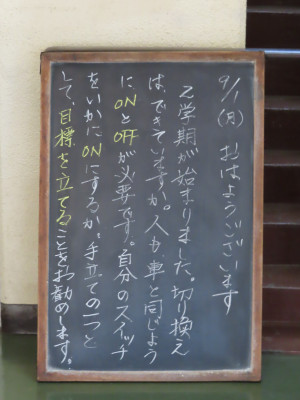 9/1(月) おはようございます
2学期が始まりました。切り換え
は、できていますか。人も、車と同じよう
に、ONとOFFが必要です。自分のスイッチ
をいかにONにするか。手立ての一つと
して、目標を立てることをお勧めします。